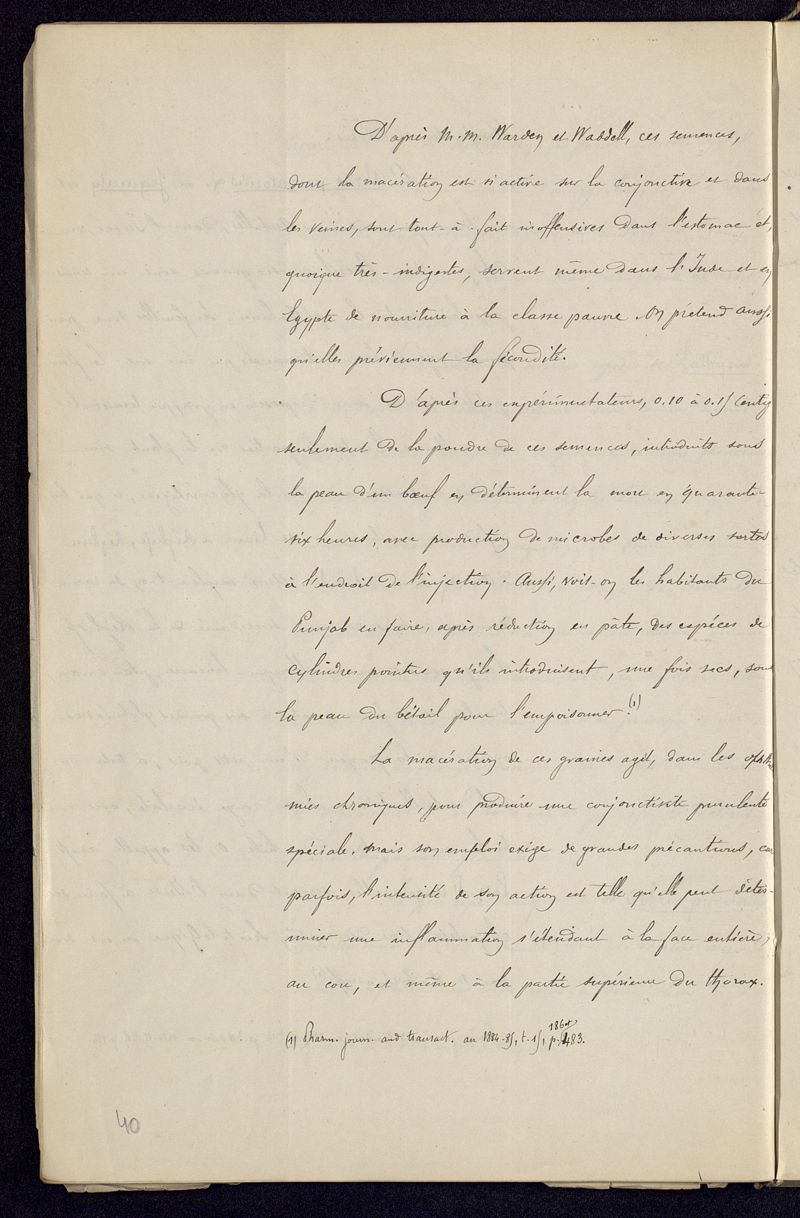 D'après M. M. Warden et Waddell, ces semences,
dont la macération est si active sur la conjonctive et dans
les veines, sont tout-à-fait inoffensives dans l'estomac et,
quoique très-indigestes, servent même dans l'Inde et en
Egypte de nourriture à la classe pauvre. On prétend aussi
qu'elles préviennent la fécondité.
D'après ces expérimentateurs, 0.10 à 0.15 centig
seulement de la poudre de ces semences, introduits sous
la peau d'un bœuf en déterminent la mort en quarante-
six heures, avec production de microbes de diverses sortes
à l'endroit de l'injection. Aussi, voit-on les habitants du
Punjab en faire, après réduction en pâte, des espèces de
cylindres pointus qu'ils introduisent, une fois secs, sous
la peau du bétail pour l'empoisonner. (1)
La macération de ces graines agit, dans les ophthal
mies chroniques, pour produire une conjonctivite purulente
spéciale. Mais son emploi exige de grandes précautions, car
parfois, l'intensité de son action est telle qu'elle peut déter-
miner une inflammation s'étendant à la face entière,
au cou, et même à la partie supérieure du thorax.
(1) Pharm. journ. and transact. an 1884-85, t-15, p. 483.
40